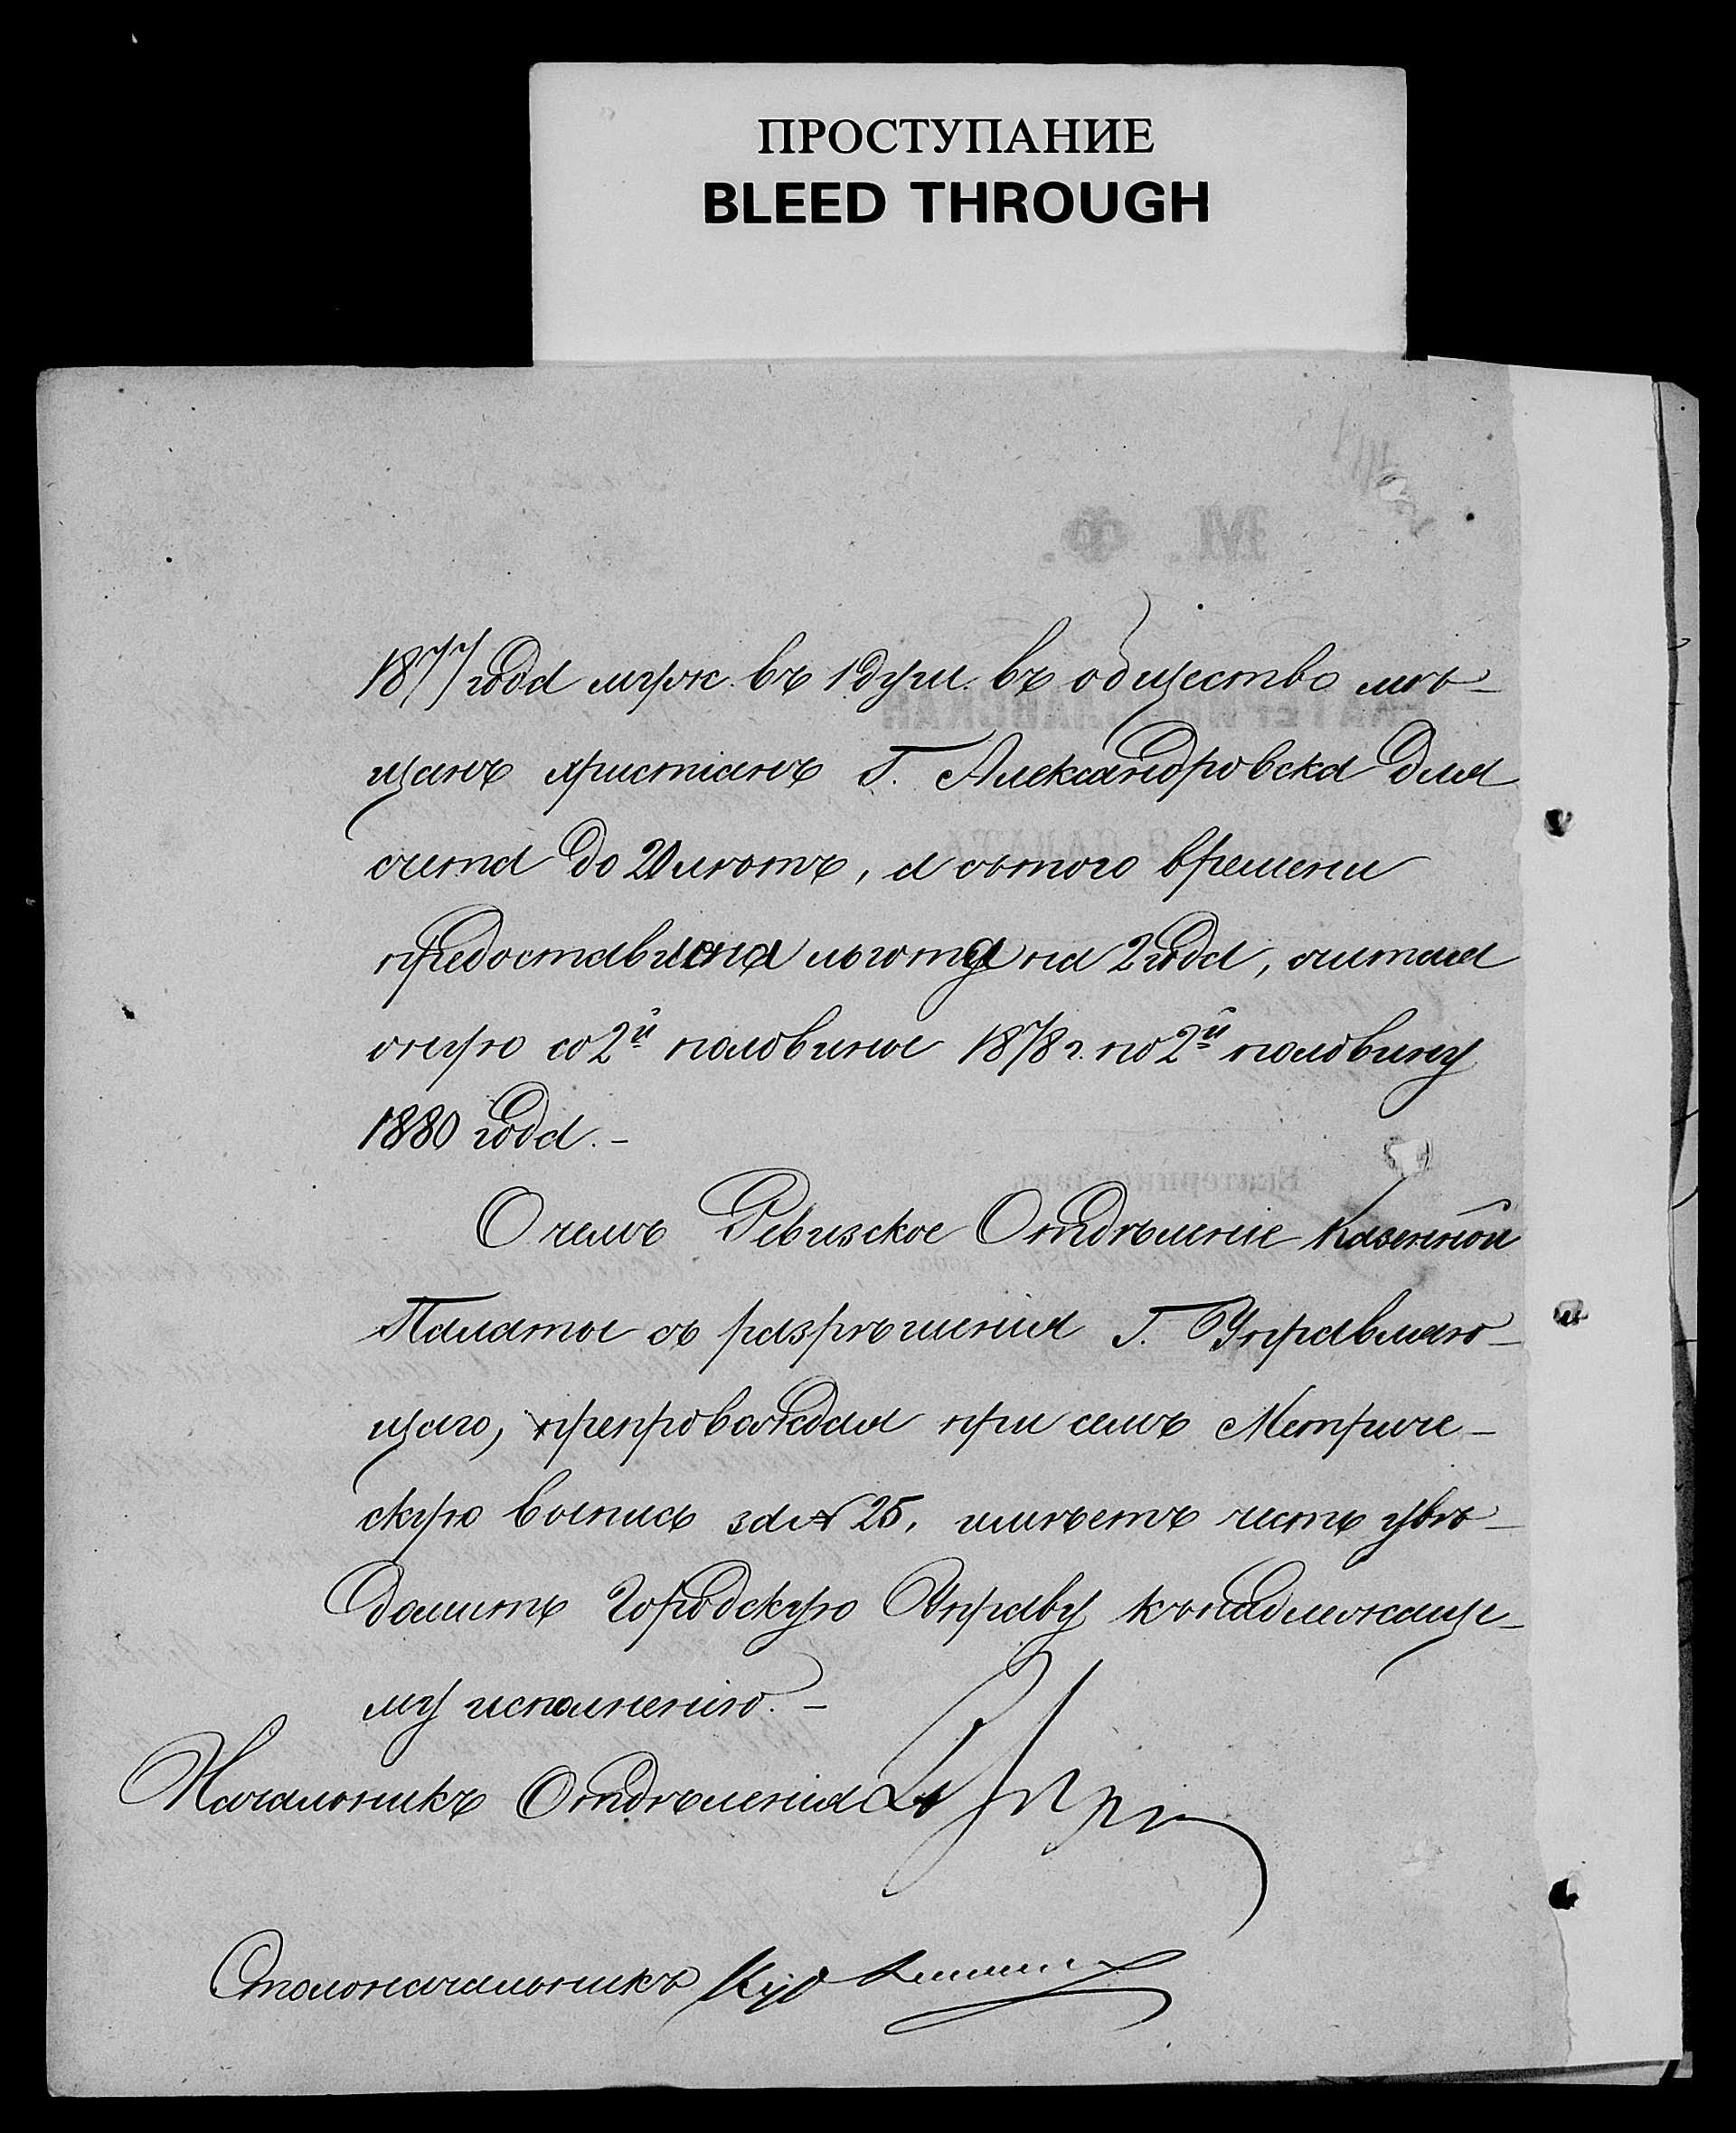 ПРОСТУПАНИЕ
BLEED THROUGH
М. Ф.
1877 года муж. въ 1 душ. въ общество мѣ-
щанъ христіанъ г. Александровска для
счета до 20 лѣтъ, а съ того времени
предоставлена льгота на 2 года, считая
оную со 2й половины 1878 г. по 2ю половину
1880 года. -
О чемъ Ревизское Отдѣленіе Казенной
Палаты съ разрѣшенія Г. Управляю-
щаго, препровождая при семъ Метриче-
скую выпись за № 25, имѣетъ честь увѣ-
домить Городскую Управу къ надлежаще-
му исполненію. -
Начальникъ Отдѣленія
Столоначальникъ